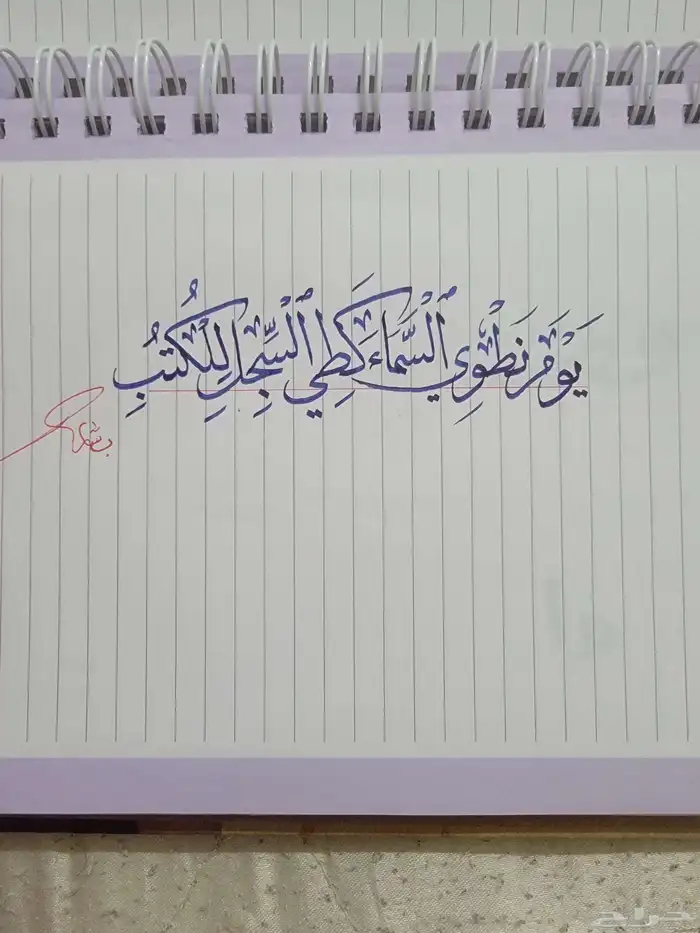 يَوْمَ نَطْوِي ٱلسَّمَاءَ كَطَيِّ ٱلسِّجِلِّ لِلْكُتُبِ
حراج